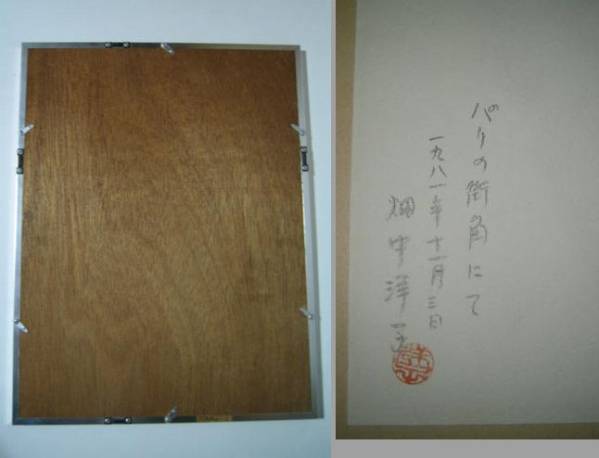 パリの街角にて
一九八一年十一月三日
畑中洋